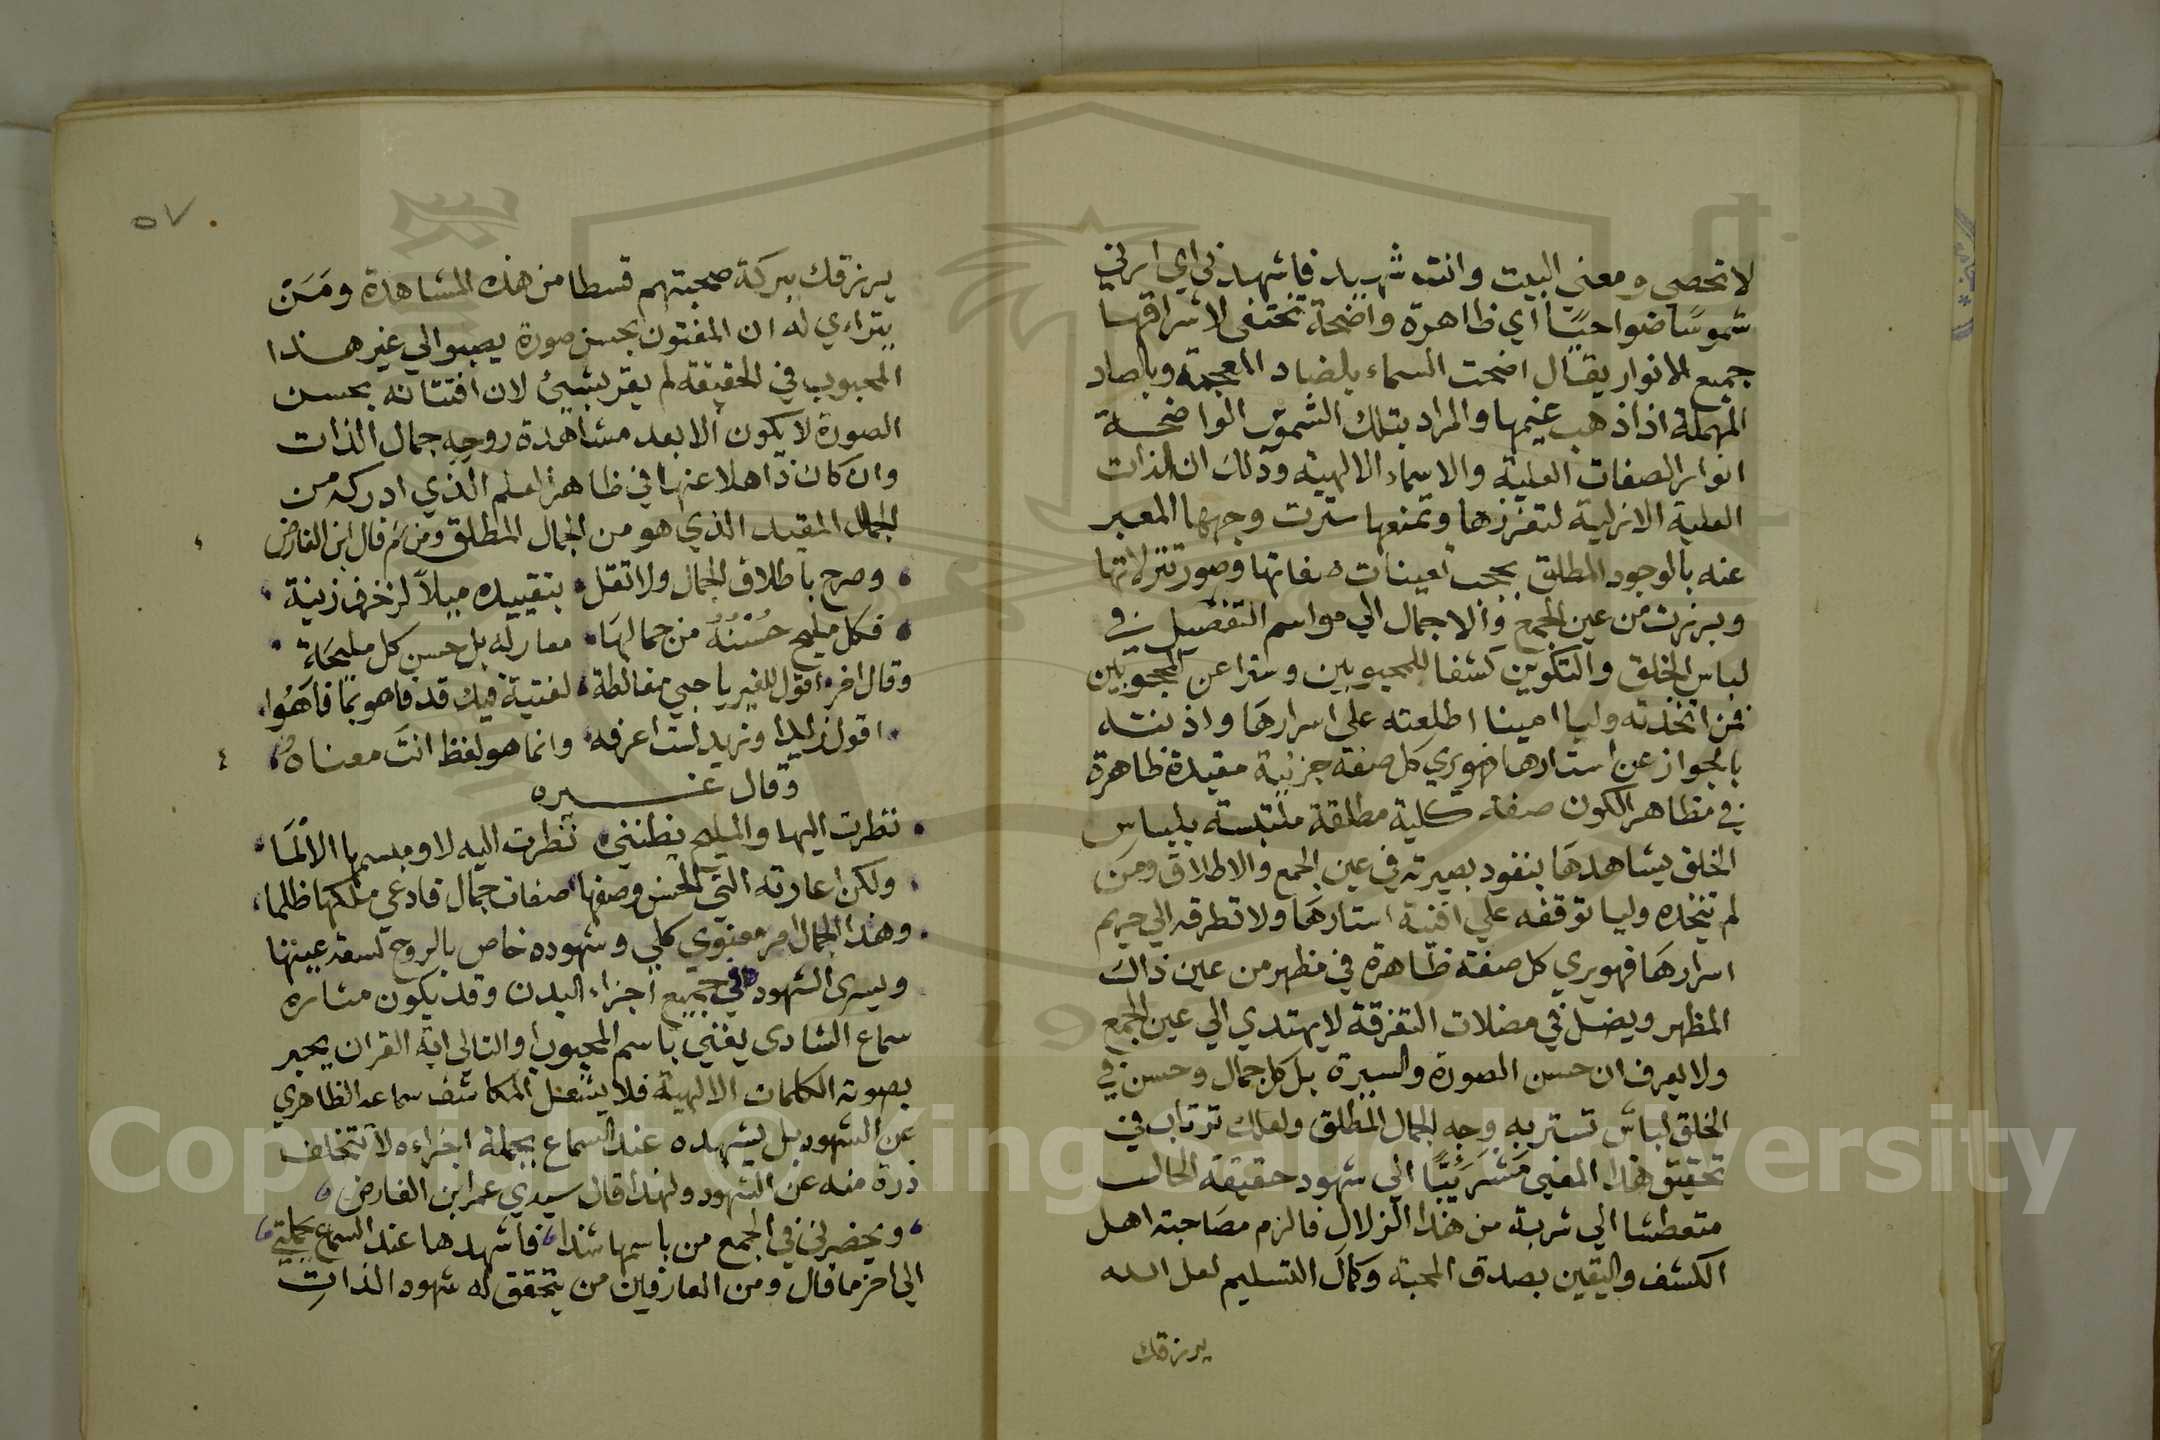 لا تحصى ومعنى البيت وانت شهيد فاشهدني اي ارني
شموسًا ضواحيًا اي ظاهرة واضحة تختفى لاشراقها
جميع الانوار يقال اضحت السماء بالضاد المعجمة وبالصاد
المهملة اذا ذهب غيمها والمراد بتلك الشموس الواضحة
انوار الصفات العلية والاسماء الالهية وذلك ان الذات
العلية الازلية لتعززها وتمنعها سترت وجهها المعبر
عنه بالوجود المطلق بحجب تعينات صفاتها وصور تنزلاتها
وبرزت من عين الجمع والاجمال الي مواسم التفصيل في
لباس الخلق والتكوين كشفا للمحبوبين وسترا عن المحجوبين
فمن اتخذته وليا امينا اطلعته على اسرارها واذنت له
بالجواز عن استارها فهو يري كل صفة جزئية مقيدة ظاهرة
في مظاهر الكون صفة كلية مطلقة ملتبسة بلباس
الخلق يشاهدها بنفود بصيرته في عين الجمع والاطلاق ومن
لم تتخده وليا توقفه علي افنية استارها ولا تطرقه الي حريم
اسرارها فهو يري كل صفة ظاهرة في مظهر من عين ذاك
المظهر ويضل في مضلات التفرقة لا يهتدي الي عين الجمع
ولا يعرف ان حسن الصورة والسيرة بل كل جمال وحسن في
الخلق لباس تستر به وجه الجمال المطلق ولعلك ترتاب في
تحقيق هذا المعنى الي شهود حقيقة الحال
متعطشا الي شربة من هذا الزلال فالزم مصاحبة اهل
الكشف واليقين بصدق المحبة وكمال التسليم لعل الله
يرزقك
٥٧
يرزقك ببركة صحبتهم قسطا من هذه المشاهدة ومن
يتراءي له ان المفتون بحسن صورة يصبو الي غير هذا
المحبوب في الحقيقة لم يقر بشيئ لان افتتانه بحسن
الصورة لا يكون الا بعد مشاهدة روحه جمال الذات
وان كان ذاهلا عنها في ظاهر العلم الذي ادركه من
الجمال المقيد الذي هو من الجمال المطلق ومن ثم قال ابن الفارض
وصرح باطلاق الجمال ولا تقل بتقييده ميلًا لزخرف زينة
فكل مليح حُسْنُهُ من جمالها معار له بل حسن كل مليحة
وقال اخر اقول للغير يا حبي مغالطة لفتية فيك قد فاهو بما فاهُوا
اقول زيدا وزيد لست اعرفه وانما هو لفظ انت معناه
وقال غيره
نظرت اليها والمليح يظنني نظرت اليه لا ومبسمها الالما
ولكن اعارته التي الحسن وصفها صفات جمال فادعي ملكها ظلما
وهذا الجمال امر معنوي كلي وشهوده خاص بالروح لسعة عينها
ويسرى الشهود في جميع اجزاء البدن وقد يكون مثاره
سماع الشادى يغني باسم المحبوب او التالي اية القران يجهر
بصوته الكلمات الالهية فلا يشغل المكاشف سماعه الظاهري
عن الشهود بل يشهده عند السماع بجملة اجزاءه لا تتخلف
ذرة منه عن الشهود ولهذا قال سيدي عمر ابن الفارض
ويحضرني في الجمع من باسمها شذا فاشهدها عند السماع بجملتي
الي اخر ما قال ومن العارفين من يتحقق له شهود الذات
Copyright © King Saud University